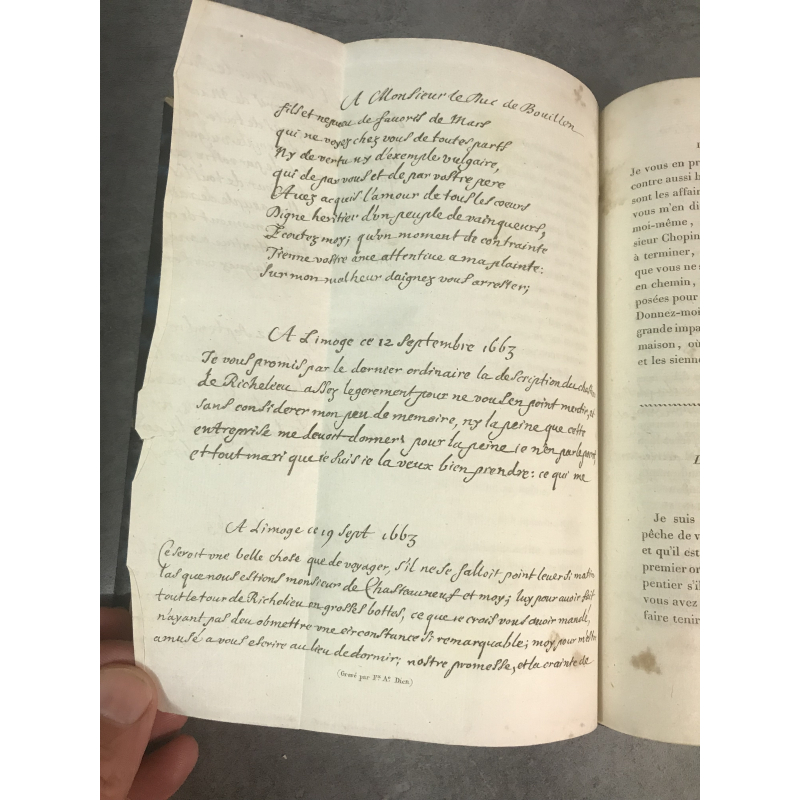 A Monsieur le Duc de Bouillon
fils et nepveu de favoris de Mars
qui ne voyez chez vous de toutes parts
Ny de vertu ny d'exemple vulgaire,
qui de par vous et de par vostre pere
Avez acquis l'amour de tous les coeurs
Digne heritier d'un peuple de vainqueurs,
Ecoutez moy; qu'un moment de contrainte
Tienne vostre ame attentive a ma plainte:
Sur mon malheur daignez vous arrester;
A Limoge ce 12 Septembre 1663
Je vous promis par le dernier ordinaire la description du chasteau
de Richelieu assez legerement pour ne vous en point mentir, et
sans considerer mon peu de memoire, ny la peine que cette
entreprise me devoit donner; pour la peine ie n'en parle point,
et tout mari que ie suis ie la veux bien prendre: ce qui me
A Limoge ce 19 Sept 1663
Ce seroit une belle chose que de voyager, s'il ne se falloit point lever si matin
las que nous estions monsieur de Chasteauneuf et moy; luy pour avoir fait
tout le tour de Richelieu en grosses bottes, ce que ie crois vous avoir mandé,
n'ayant pas deu obmettre une circonstance si remarquable; moy pour m'estre
amusé a vous escrire au lieu de dormir; nostre promesse, et la crainte de
(Gravé par Fs. Ae. Dien)
Je vous en pr
contre aussi b
sont les affair
vous m'en di
moi-même,
sieur Chopin
à terminer,
que vous ne
en chemin,
posées pour
Donnez-moi
grande impa
maison, où
et les sienne
Je suis
pêche de v
et qu'il est
premier or
pentier s'il
vous avez
faire tenir